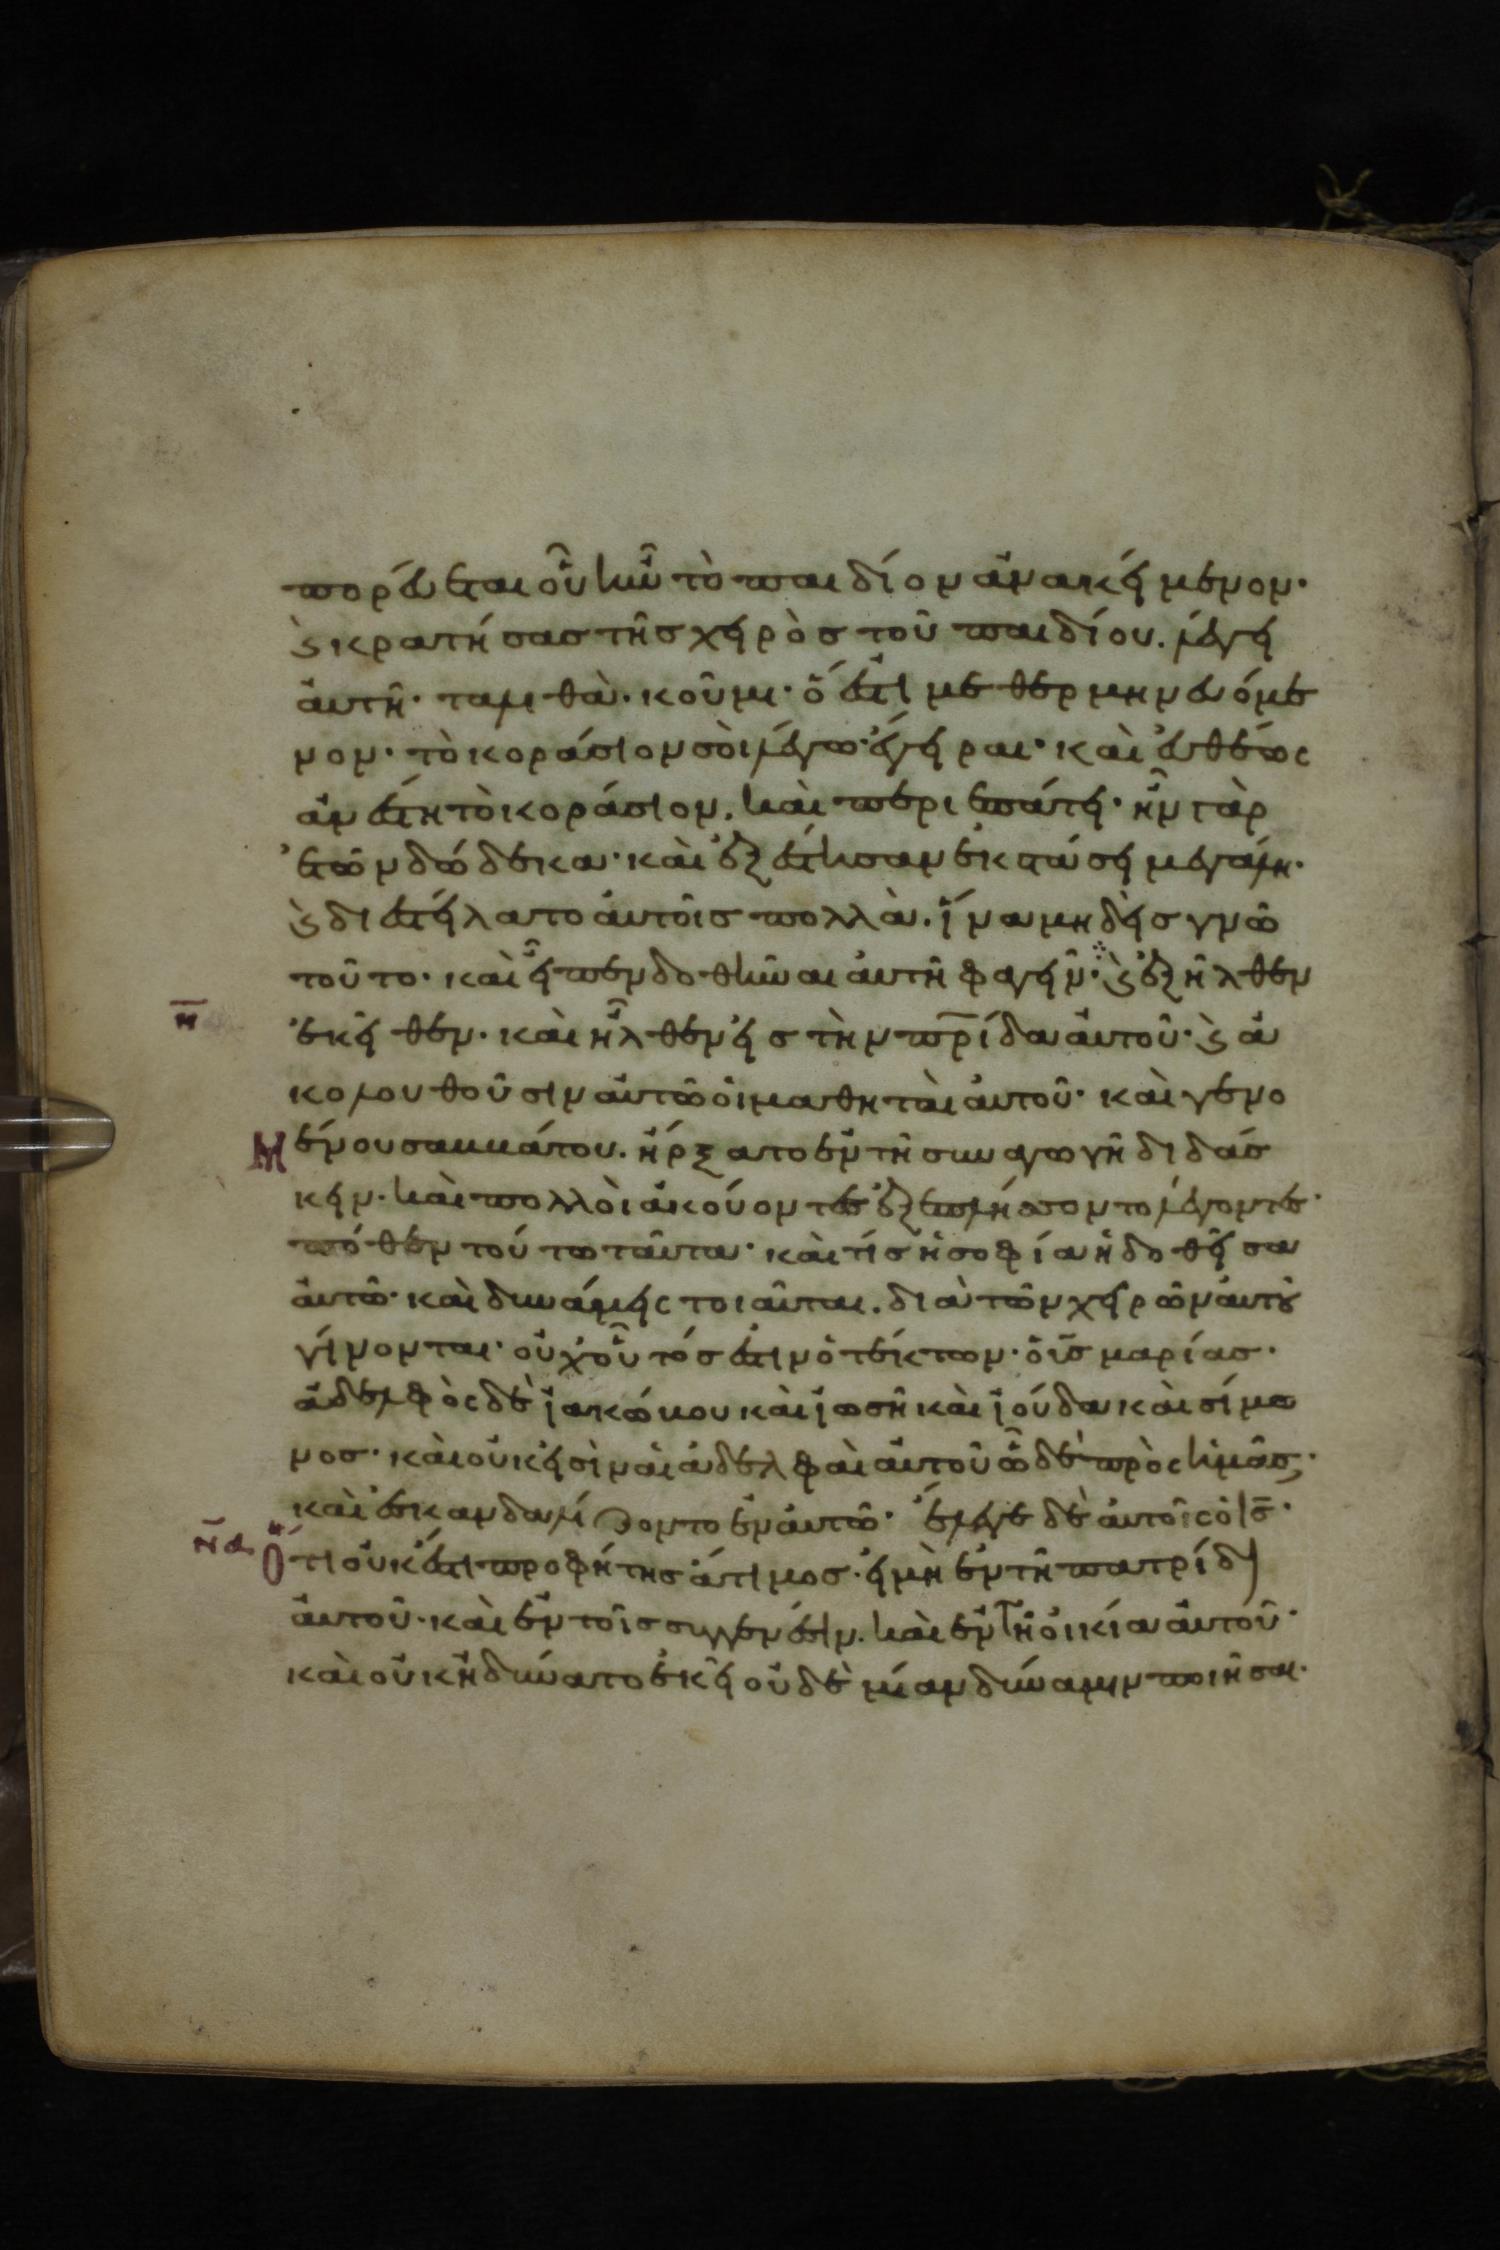 πορεύεται οὗ ἦν τὸ παιδίον ἀνακείμενον·
ϗ κρατήσας τῆς χειρὸς τοῦ παιδίου. λέγει
αὐτῆ· ταλιθὰ· κοῦμι· ὅ ἐστι μεθερμηνευόμε
νον· τὸ κοράσιον σοὶ λέγω· ἔγειραι· καὶ εὐθέως
ἀνέστη τὸ κοράσιον. καὶ περιεπάτει· ἦν γὰρ
ἐτῶν δώδεκα· καὶ ἐξέστησαν ἐκστάσει μεγάλη·
ϗ διεστείλατο αὐτοῖς πολλὰ. ἵνα μηδεὶς γνῶ
τοῦτο· καὶ εἶπεν δοθῆναι αὐτῆ φαγεῖν· ϗ ἐξῆλθεν
ν̅
ἐκεῖθεν· καὶ ἦλθεν εἰς τὴν πρ̅ίδα αὐτοῦ· ϗ ἀ
κολουθοῦσιν αὐτῶ οἱ μαθηταὶ αὐτοῦ· καὶ γενο
μένου σαββάτου. ἤρξατο ἐν τῆ συναγωγῆ διδάσ
κειν· καὶ πολλοὶ ἀκούοντες ἐξεπλήσσοντο λέγοντες·
πόθεν τούτω ταῦτα· καὶ τίς ἡ σοφία ἡ δοθεῖσα
αὐτῶ· καὶ δυνάμεις τοιαῦται. διὰ τῶν χειρῶν αὐτοῦ
γίνονται· οὐχ οὗτός ἐστιν ὁ τέκτων· ὁ υι̅ς̅ μαρίας·
ἀδελφὸς δὲ ἰακώβου καὶ ἰωσῆ καὶ ἰούδα καὶ σίμω
νος· καὶ οὐκ εἰσὶν αἱ ἀδελφαὶ αὐτοῦ ὧδε πρὸς ἡμᾶς;·
καὶ ἐσκανδαλίζοντο ἐν αὐτῶ· ἔλεγε δὲ αὐτοῖς ὁ ι̅ς̅·
ν̅α
ὅτι οὐκ ἔστι προφήτης ἄτιμος· εἰ μὴ ἐν τῆ πατρίδι
αὐτοῦ· καὶ ἐν τοῖς συγγενέσιν. καὶ ἐν τῆ οἰκία αὐτοῦ·
καὶ οὐκ ἠδύνατο ἐκεῖ οὐδὲ μίαν δύναμιν ποιῆσαι·